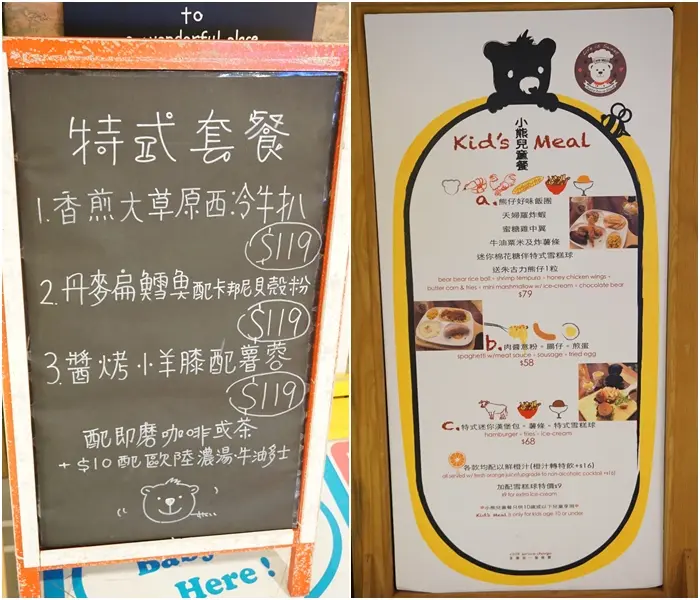 to
a wonderful place
特式套餐
1.香煎大草原西冷牛扒
$119
2.丹麥扁鱈魚配卡邦尼貝殼粉
$119
3.醬烤小羊膝配薯蓉
$119
配即磨咖啡或茶
+$10配歐陸濃湯牛油多士
Baby
Here!
小熊兒童餐
Kid's Meal
a.熊仔好味飯團
天婦羅炸蝦
蜜糖雞中翼
牛油粟米及炸薯條
迷你棉花糖伴特式雪糕球
送朱古力熊仔1粒
bear bear rice ball、shrimp tempura、honey chicken wings、
butter corn & fries、mini marshmallow w/ ice-cream、chocolate bear
$79
b.肉醬意粉。腸仔。煎蛋
spaghetti w/meat sauce、sausage、fried egg
$58
c.特式迷你漢堡包。薯條。特式雪糕球
hamburger、fries、ice-cream
$68
各款均配以鮮橙汁(橙汁轉特飲+$16)
加配雪糕球特價$9
$9 for extra ice-cream
Kid's Meal is only for kids age 10 or under